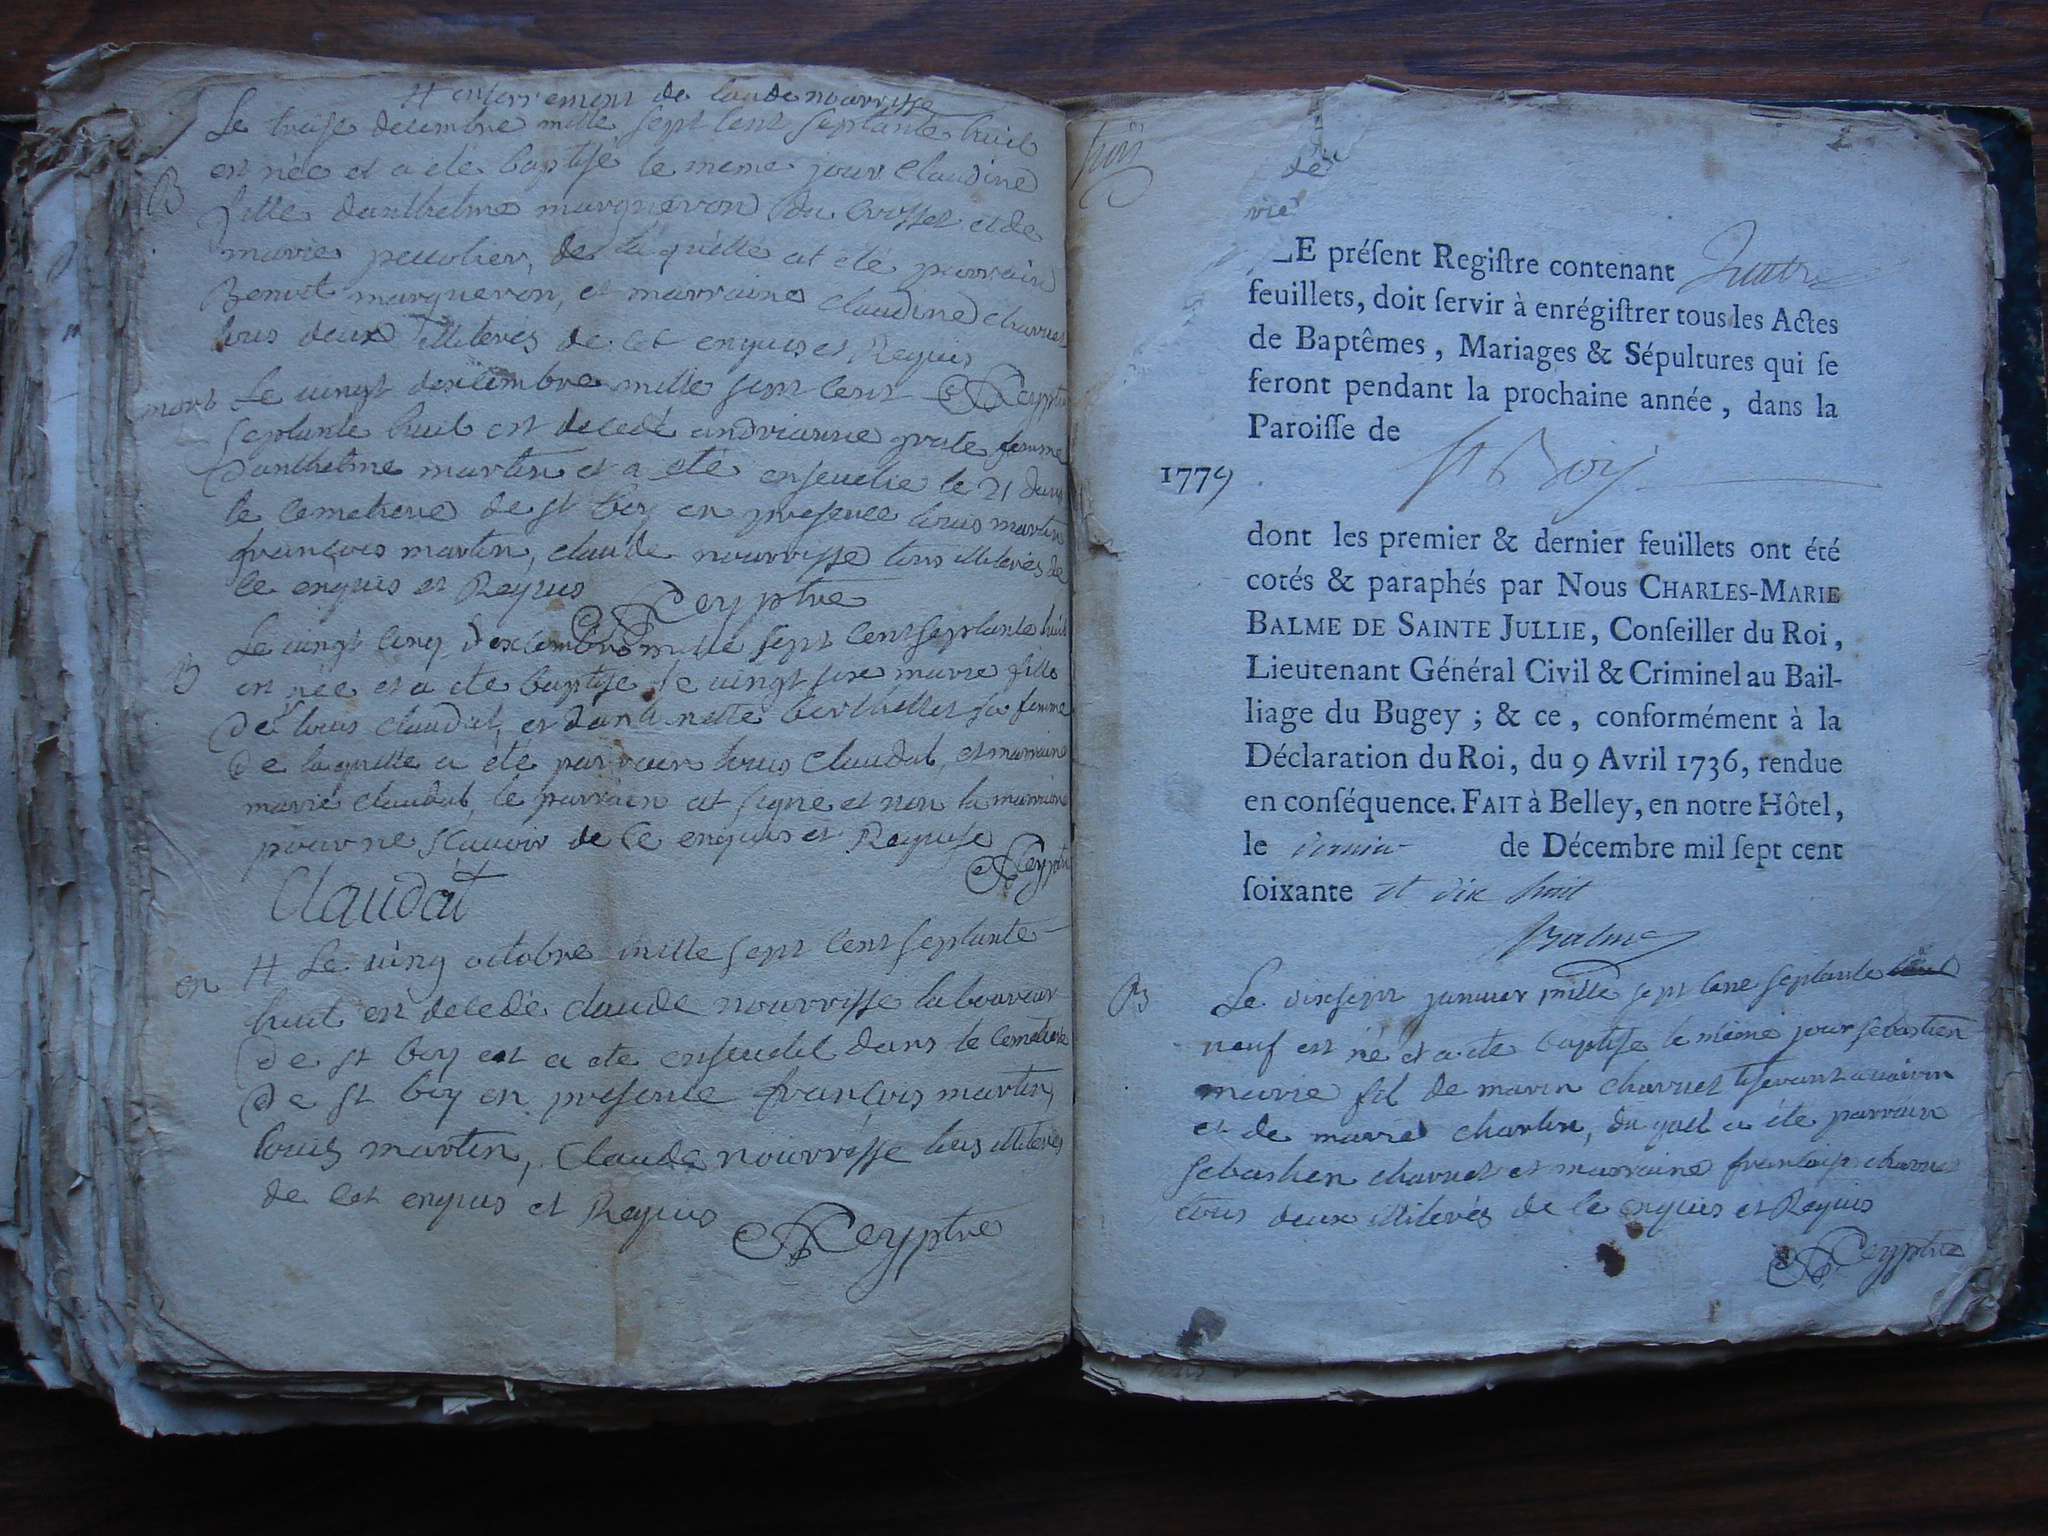 H enterrement de Claude nourrisse
Le treise decembre mille sept cent septante huit
B est née et a été baptisé le meme jour Claudine
fille danthelme marqueron du crosset et de
marie peculier, de laquelle at été parrain
Benoit marqueron, et marraine claudine charvet
tous deux illiterés de cet enquis et Requis
Reyptre
mort Le vingt decembre mille sept cent
septante huit est decedé andrianne grate femme
danthelme martin et a été ensevelie le 21 dans
le cemetiere de st boy en presence louis martin
françois martin, claude nourrisse tous illiterés de
ce enquis et Requis Reyptre
B Le vingt cinq decembre mille sept cent septante huit
est née et a ete baptisé le vingt six marie fille
de louis claudat, et danthelmette berthellet sa femme
de laquelle a été parrain louis claudat, et marraine
marie claudat, le parrain at signe et non la marraine
pour ne scavoir de ce enquis et Requise
Reyptre
Claudat
en H Le cinq octobre mille sept cent septante
huit est decedé claude nourrisse laboureur
de st boy et a ete ensevelit dans le cemetiere
de st boy en presence françois martin,
louis martin, Claude nourrisse tous illiterés
de cet enquis et Requis
Reyptre
2
de
vie
LE préſent Regiſtre contenant quatre
feuillets, doit ſervir à enrégiſtrer tous les Actes
de Baptêmes, Mariages & Sépultures qui ſe
feront pendant la prochaine année, dans la
Paroiſſe de St Boij
1779
dont les premier & dernier feuillets ont été
cotés & paraphés par Nous CHARLES-MARIE
BALME DE SAINTE JULLIE, Conſeiller du Roi,
Lieutenant Général Civil & Criminel au Bail-
liage du Bugey ; & ce, conformément à la
Déclaration du Roi, du 9 Avril 1736, rendue
en conſéquence. FAIT à Belley, en notre Hôtel,
le premier de Décembre mil ſept cent
ſoixante et dix huit
Balme
B Le dixsept janvier mille sept cent septante
neuf est né et a ete baptisé le même jour sebastien
marie fil de marin charvet tiserant
et de marie charlin, du quel a été parrain
sebastien charvet et marraine françoise charvet
tous deux illiterés de ce enquis et Requis
Reyptre